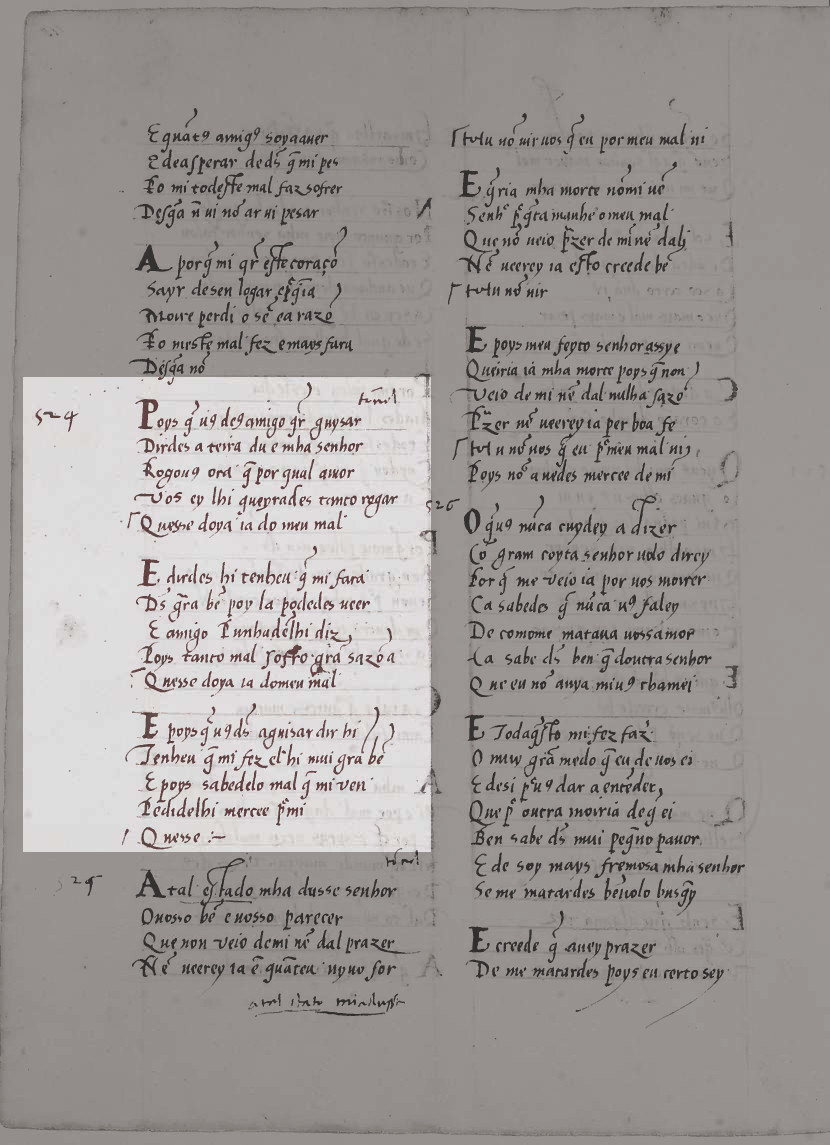 E quãt9 amig9 soya auer
E de asperar de ds̃ q̃ mi pes
Ro mi todeste mal faz sofrer
Desq̃a ñ ui nõ ar ui pesar
A por q̃ mi q̃r este coraçõ
Sayr de seu logar
Moire perdi o sẽ e a razõ
Ro meste mal fez e mays fara
Desq̃a nõ
tẽnel
524
Poys q̃ u9 de9 amigo q̃r guysar
Dirdes a terra du e mha senhor
Rogou9 ora q̃ por qual amor
Vos ey lhi queyrades tanto rogar
Quesse doya ia do meu mal
E dirdes hi tenheu q̃ mi fara
Ds̃ grã bẽ poy la podedes ueer
E amigo Punhadelhi diz
Poys tanto mal soffro grã sazõ a
Quesse doya ia do meu mal
E poys q̃ u9 ds̃ aguisar dir hi
Tenheu q̃ mi fez el hi mui grã bẽ
E poys sabedelo mal q̃ mi ven
Pedidelhi mercee p̃ mi
Quesse :~
tẽnel
525
A tal estado mha dusse senhor
O uosso bẽ e uosso parecer
Que non veio de mi nẽ dal prazer
Nẽ ueerey ia ẽ quãteu uyuo for
atal stato miadusse
tu nõ uir uos q̃ eu por meu mal ui
E q̃ria mha morte nõ mi uẽ
Senhor p̃ q̃ tamanhe o meu mal
Que nõ veio p̃zer de mi nẽ dal
Nẽ ueerey ia esto creede bẽ
tu nõ uir
E poys meu feyto senhor assy e
Queiria ia mha morte poys q̃ non
Veio de mi nẽ dal nulha sazõ
Pzer nẽ ueerey ia per boa fe
tu nõ uos q̃ eu p̃ meu mal ui
Poys nõ auedes mercee de mi
526
O q̃ u9 nũca cuydey a dizer
Cõ gram coyta senhor uolo direy
Por q̃ me veio ia por uos morrer
Ca sabedes q̃ nũca u9 faley
De comome mataua uossamor
Ca sabe ds̃ ben q̃ doutra senhor
Que eu nõ auya miu9 chamei
E Todaq̃sto mi fez faz
O muy grã medo q̃ eu de uos ei
E desi p̃ u9 dar a entẽder
Que p̃ outra moiria de q̃ ei
Ben sabe ds̃ mui peq̃no pauor
E de soy mays fremosa mha senhor
Se me matardes bẽ uolo busq̃y
E creede q̃ auey prazer
De me matardes poys eu certo sey